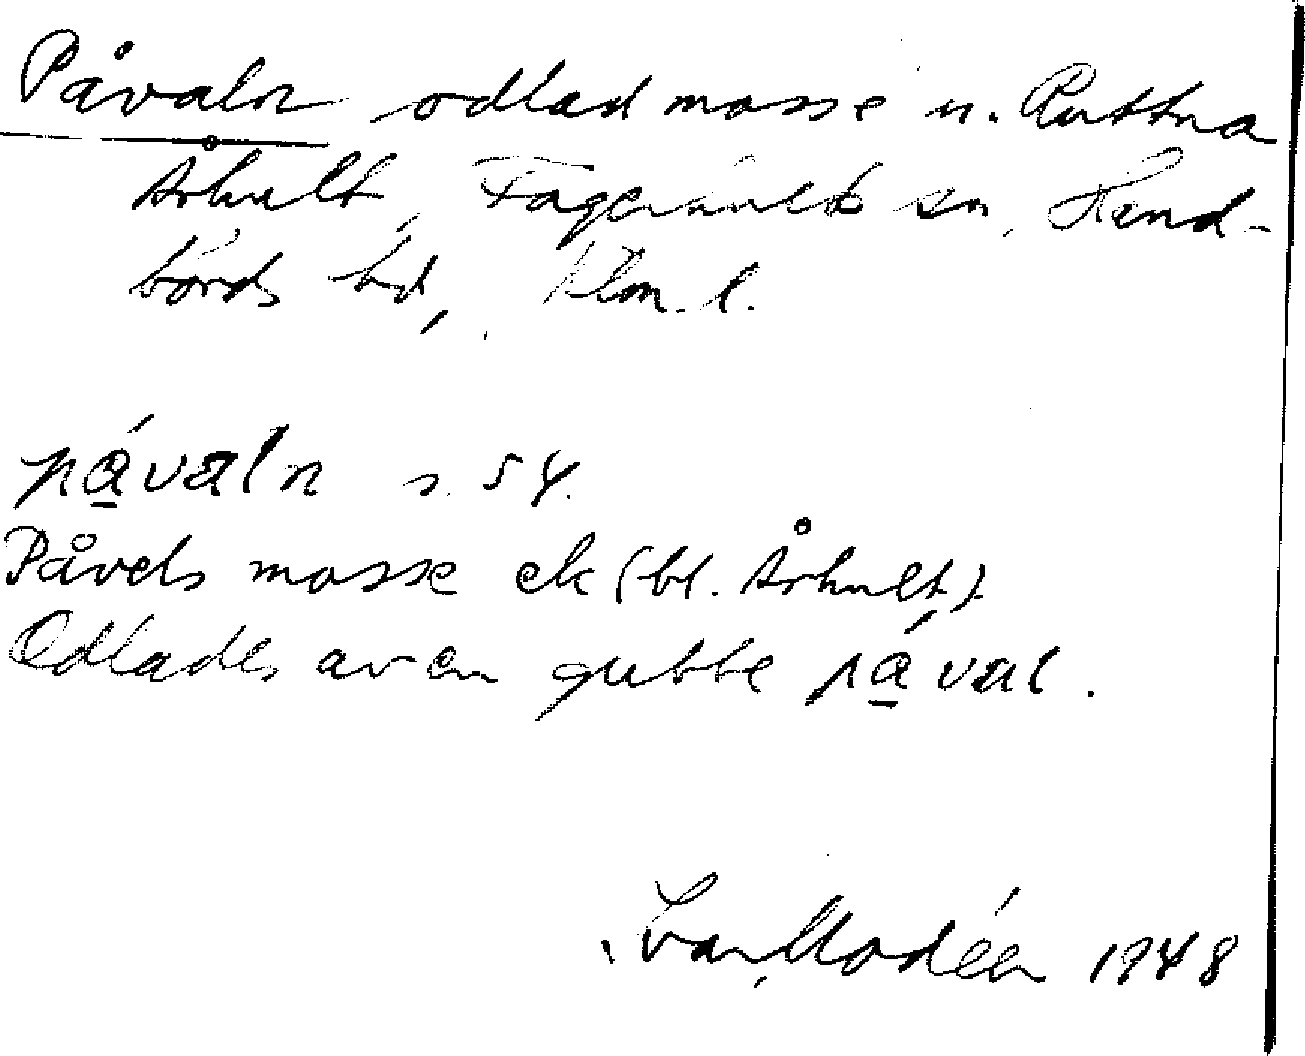 Påvaln odlad mosse u. Ruttna
Århult, Fagerhults sn, Hand-
börds hd, Klm. l.
pávaln s. 54.
Påvels mosse ek (bl. Århult).
Odlades av en gubbe pával.
Ivar Modéer 1948